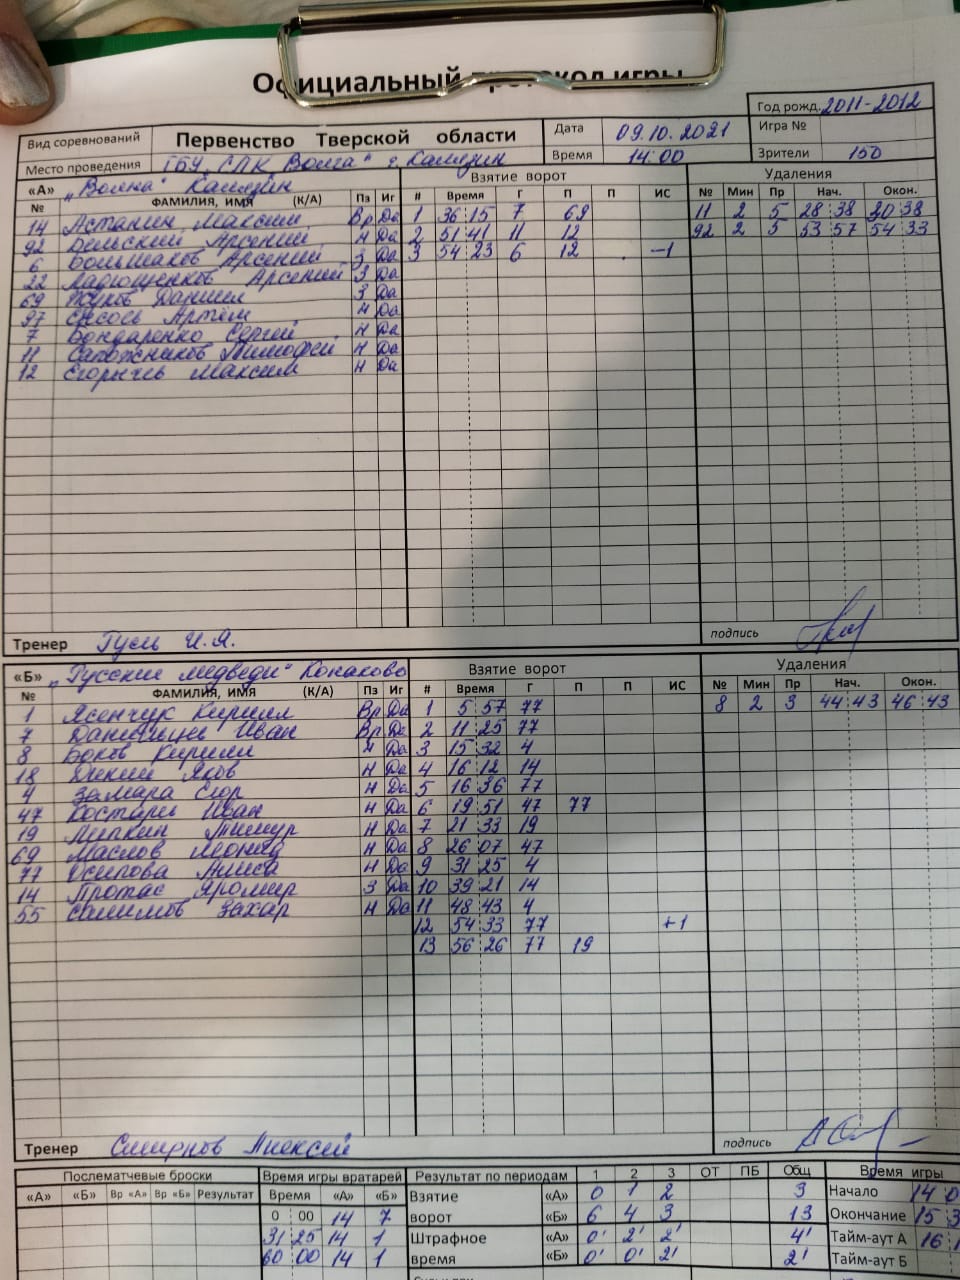 Официальный протокол игры
Год рожд. 2011-2012
Вид соревнований Первенство Тверской области Дата 09.10.2021 Игра №
Место проведения ГБУ СПК "Волга" г. Калязин Время 14:00 Зрители 150
«А» "Волна" Калязин Взятие ворот Удаления
№ ФАМИЛИЯ, ИМЯ (К/А) Пз Иг # Время Г П П ИС № Мин Пр Нач. Окон.
14 Астанин Максим Вр Да 1 36 15 7 69 11 2 5 28 38 30 38
92 Бельский Арсений Н Да 2 51 41 11 12 92 2 5 53 57 54 33
6 Большаков Арсений З Да 3 54 23 6 12 -1
22 Ладющенков Арсений З Да
69 Жуков Даниил З Да
97 Сысоев Артём Н Да
7 Бондаренко Сергей Н Да
11 Сапожников Тимофей Н Да
12 Егорычев Максим Н Да
Тренер Гусь И.Я. подпись
«Б» "Русские медведи" Конаково Взятие ворот Удаления
№ ФАМИЛИЯ, ИМЯ (К/А) Пз Иг # Время Г П П ИС № Мин Пр Нач. Окон.
1 Ясенчук Кирилл Вр Да 1 5 57 77 8 2 3 44 43 46 43
7 Данильцев Иван Вр Да 2 11 25 77
8 Боков Кирилл Н Да 3 15 32 4
18 Дикий Яков Н Да 4 16 12 14
4 Замара Егор Н Да 5 16 36 77
47 Костарь Иван Н Да 6 19 51 47 77
19 Липкин Тимур Н Да 7 21 33 19
69 Маслов Леонид Н Да 8 26 07 47
77 Осипова Алиса Н Да 9 31 25 4
14 Протас Яромир З Да 10 39 21 14
55 Салимов Захар Н Да 11 48 43 4
12 54 33 77 +1
13 56 26 77 19
Тренер Смирнов Алексей подпись
Послематчевые броски Время игры вратарей Результат по периодам 1 2 3 ОТ ПБ Общ Время игры
«А» «Б» Вр «А» Вр «Б» Результат Время «А» «Б» Взятие «А» 0 1 2 3 Начало 14 0
0 00 14 7 ворот «Б» 6 4 3 13 Окончание 15 3
31 25 14 1 Штрафное «А» 0' 2' 2' 4' Тайм-аут А 16
60 00 14 1 время «Б» 0' 0' 2' 2' Тайм-аут Б